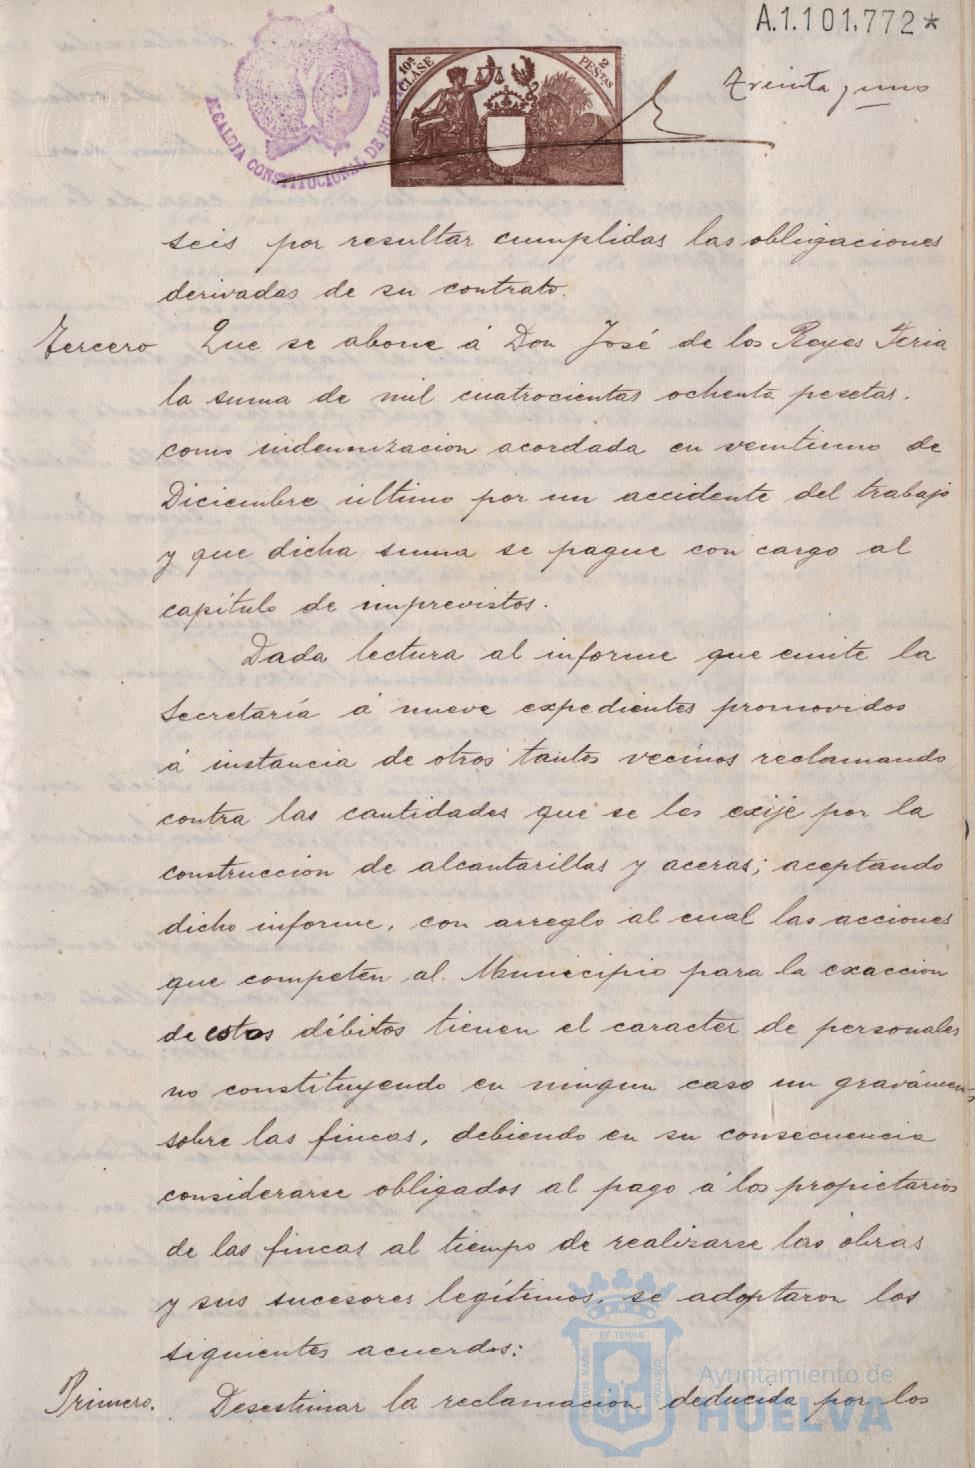 A.1.101.772*
ALCALDIA CONSTITUCIONAL DE HUELVA
10ª CLASE
2 PESTAS
Treinta y uno
seis por resultar cumplidas las obligaciones
derivadas de su contrato.
Tercero Que se abone á Don José de los Reyes Feria
la suma de mil cuatrocientas ochenta pesetas.
como indemnización acordada en veintiuno de
Diciembre último por un accidente del trabajo
y que dicha suma se pague con cargo al
capítulo de imprevistos.
Dada lectura al informe que emite la
Secretaría á nueve expedientes promovidos
á instancia de otros tantos vecinos reclamando
contra las cantidades que se les exije por la
construcción de alcantarillas y aceras; aceptando
dicho informe, con arreglo al cual las acciones
que competen al Municipio para la exacción
de estos débitos tienen el caracter de personales
no constituyendo en ningun caso un gravámen
sobre las fincas, debiendo en su consecuencia
considerarse obligados al pago á los propietarios
de las fincas al tiempo de realizarse las obras
y sus sucesores legítimos, se adoptaron los
siguientes acuerdos:
Primero. Desestimar la reclamación deducida por los
PORTUS MARIS ET TERRÆ CUSTODIA
Ayuntamiento de
HUELVA